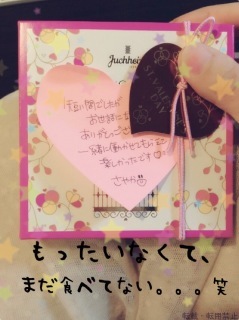 Juchhei
短い間でしたが
お世話にな
ありがとうござ
一緒に働かせてもらえて
楽しかったです
さやか
もったいなくて、
まだ食べてない。。。笑
転載・転用禁止